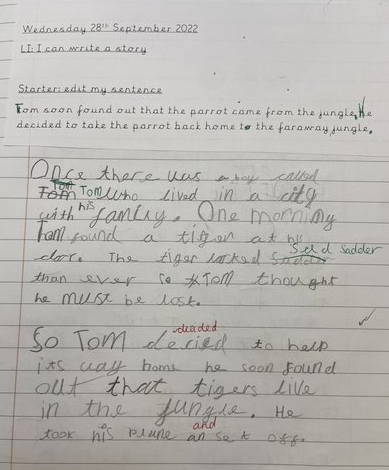 Wednesday 28th September 2022
LI: I can write a story
Starter: edit my sentence
Tom soon found out that the parrot came from the jungle, He
decided to take the parrot back home to the faraway jungle.
Once there was a boy called
Tom Tom who lived in a city
with his family. One morning
tom found a tiger at his
door. The tiger looked Sadder
than ever so Tom thought
he must be lost.
decided
So Tom decied to help
its way home he soon found
out that tigers live
in the jungle. He
and
took his plane an set off.